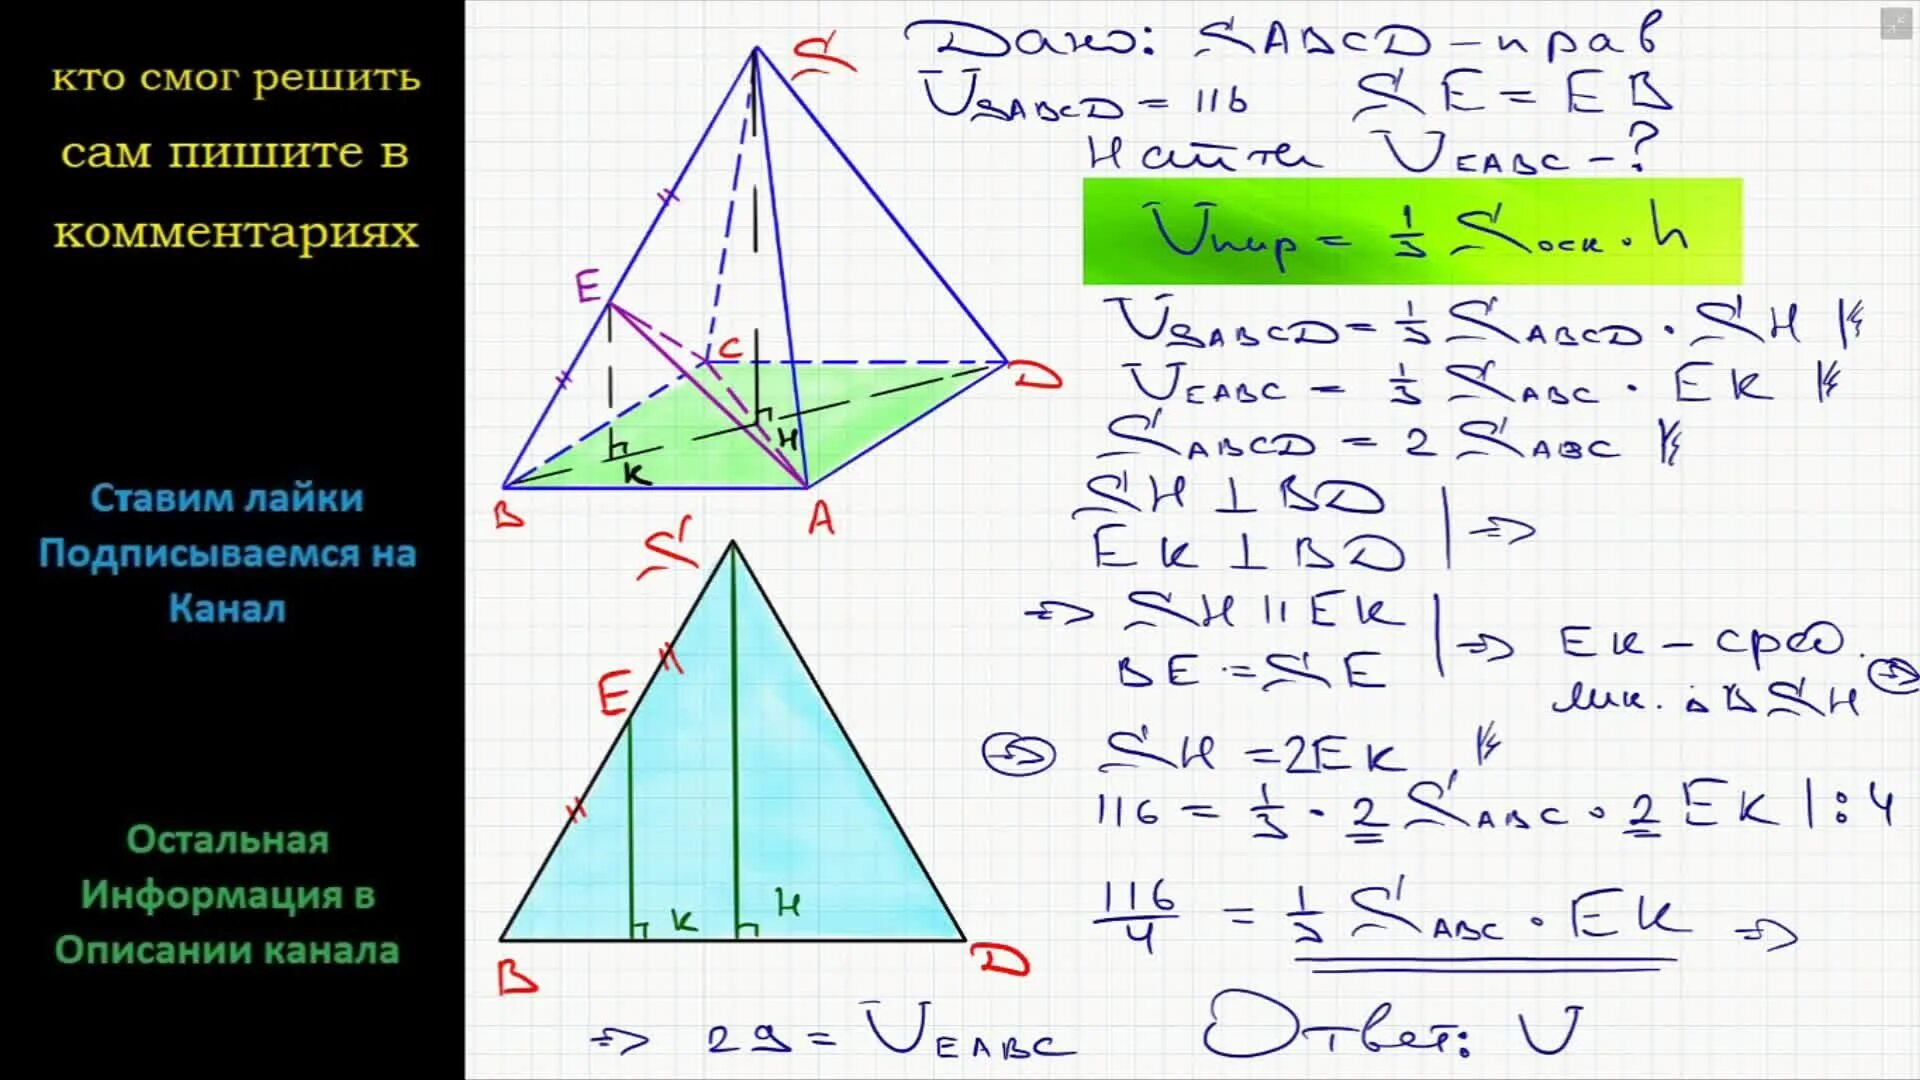 кто смог решить
сам пишите в
комментариях
Ставим лайки
Подписываемся на
Канал
Остальная
Информация в
Описании канала
S
E
C
D
H
K
B
A
S
E
K
H
B
D
Дано: SABCD - прав
V_SABCD = 116 SE = EB
Найти V_EABC - ?
V_пир = 1/3 S_осн · h
V_SABCD = 1/3 S_ABCD · SH
V_EABC = 1/3 S_ABC · EK
S_ABCD = 2 S_ABC
SH ⊥ BD
EK ⊥ BD | ⇒
⇒ SH || EK
BE = SE | ⇒ EK - сред.
лин. Δ BSH ⇒
⇒ SH = 2EK
116 = 1/3 · 2 S_ABC · 2 EK | : 4
116/4 = 1/3 S_ABC · EK ⇒
⇒ 29 = V_EABC Ответ: V